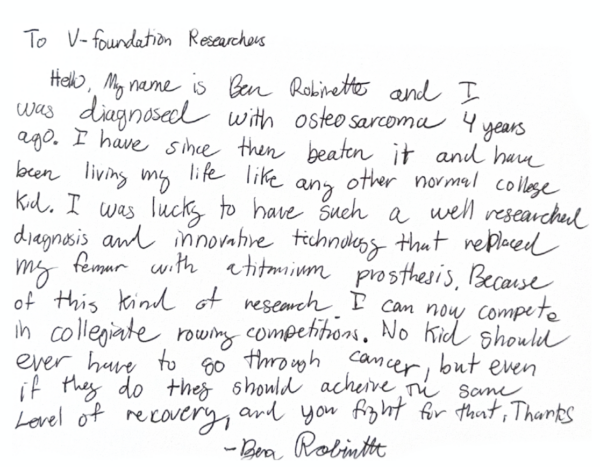 To V-foundation Researchers
Hello, My name is Ben Robinette and I
was diagnosed with osteosarcoma 4 years
ago. I have since then beaten it and have
been living my life like any other normal college
Kid. I was lucky to have such a well researched
diagnosis and innovative technology that replaced
my femur with a titanium prosthesis. Because
of this kind of research I can now compete
in collegiate rowing competitions. No Kid should
ever have to go through cancer, but even
if they do they should acheive the same
Level of recovery, and you fight for that, Thanks
-Ben Robinette